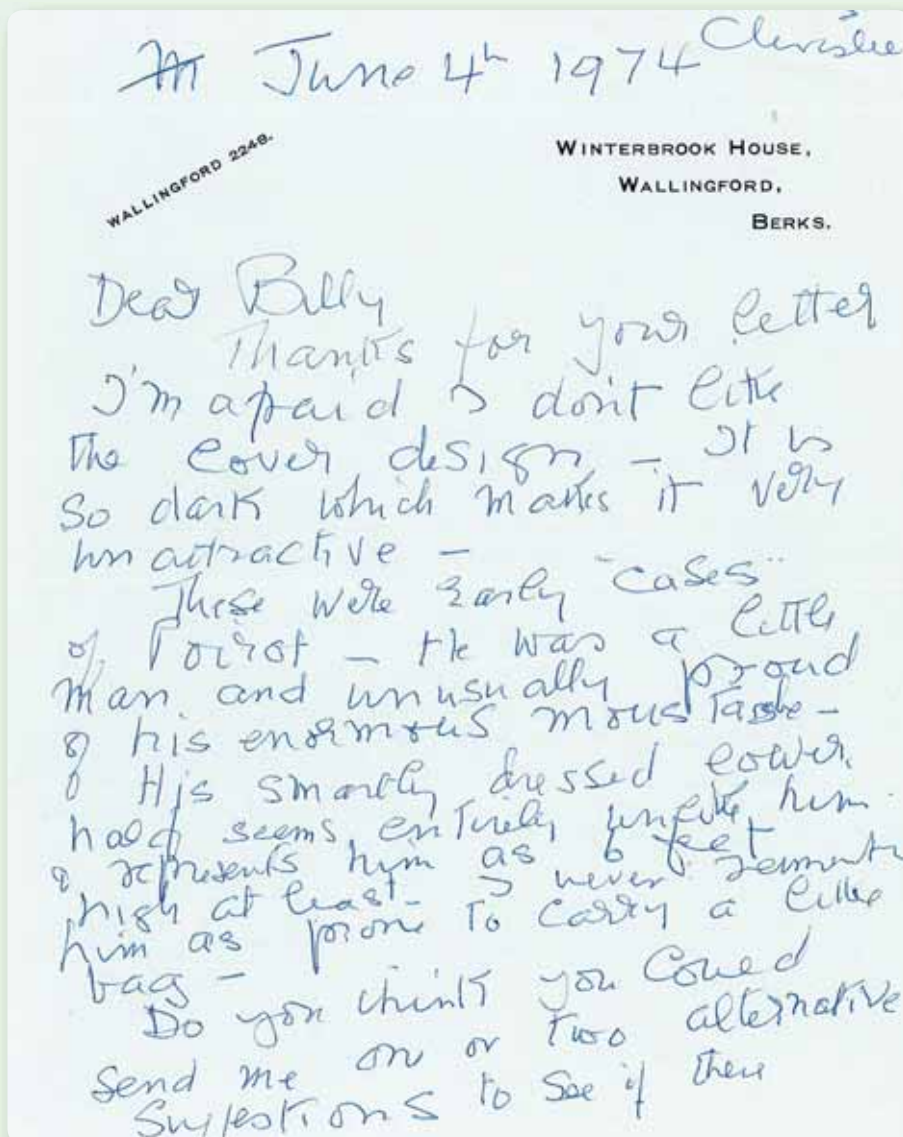 June 4th 1974 Christie
WALLINGFORD 2248.
WINTERBROOK HOUSE,
WALLINGFORD,
BERKS.
Dear Billy
Thanks for your letter
I'm afraid I don't like
the cover design – It is
so dark which makes it very
unattractive –
These were early "cases"
of Poirot – He was a little
man and unusually proud
of his enormous moustache –
His smartly dressed lower
half seems entirely unlike him
& represents him as 6 feet
high at least – I never
him as prone to carry a little
bag –
Do you think you could
send me on or two alternative
suggestions to see if there